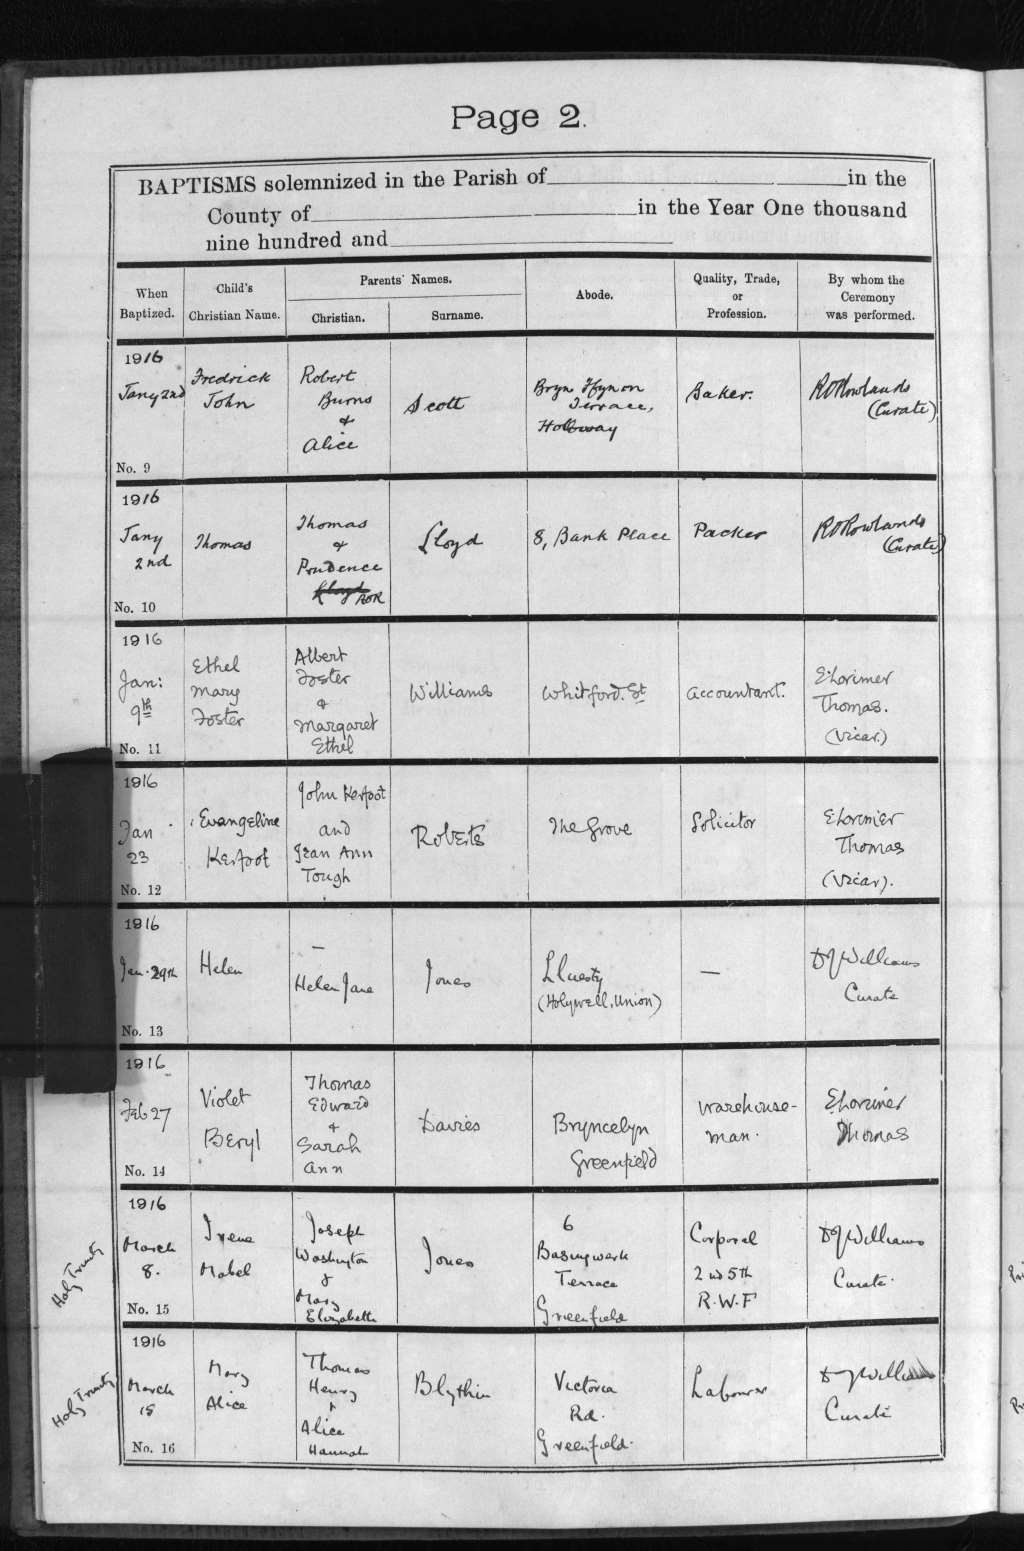 Page 2.
BAPTISMS solemnized in the Parish of in the
County of in the Year One thousand
nine hundred and
When Baptized.
Child's Christian Name.
Parents' Names.
Christian.
Surname.
Abode.
Quality, Trade, or Profession.
By whom the Ceremony was performed.
1916
Jany 2nd
No. 9
Fredrick
John
Robert
Burns
&
Alice
Scott
Bryn Ffynon
Terrace,
Holloway
Baker.
RORowlands
(Curate)
1916
Jany
2nd
No. 10
Thomas
Thomas
&
Prudence
Lloyd ROR
Lloyd
8, Bank Place
Packer
RORowlands
(Curate)
1916
Jan:
9th
No. 11
Ethel
Mary
Foster
Albert
Foster
&
Margaret
Ethel
Williams
Whitford. St
Accountant.
E Lorimer
Thomas.
(Vicar.)
1916
Jan
23
No. 12
Evangeline
Kerfoot
John Kerfoot
and
Jean Ann
Tough
Roberts
The Grove
Solicitor
E Lorimer
Thomas
(Vicar).
1916
Jan. 29th
No. 13
Helen
—
Helen Jane
Jones
Lluesty
(Holywell, Union)
—
DJWilliams
Curate
1916
Feb 27
No. 14
Violet
Beryl
Thomas
Edward
&
Sarah
Ann
Davies
Bryncelyn
Greenfield
Warehouse-
man.
E Lorimer
Thomas
Holy Trinity
1916
March
8.
No. 15
Irene
Mabel
Joseph
Washington
&
Mary
Elizabeth
Jones
6
Basingwerk
Terrace
Greenfield
Corporal
2nd 5th
R.W.F
DJWilliams
Curate.
Holy Trinity
1916
March
15
No. 16
Mary
Alice
Thomas
Henry
&
Alice
Hannah
Blythin
Victoria
Rd.
Greenfield.
Labourer
DJWilliams
Curate